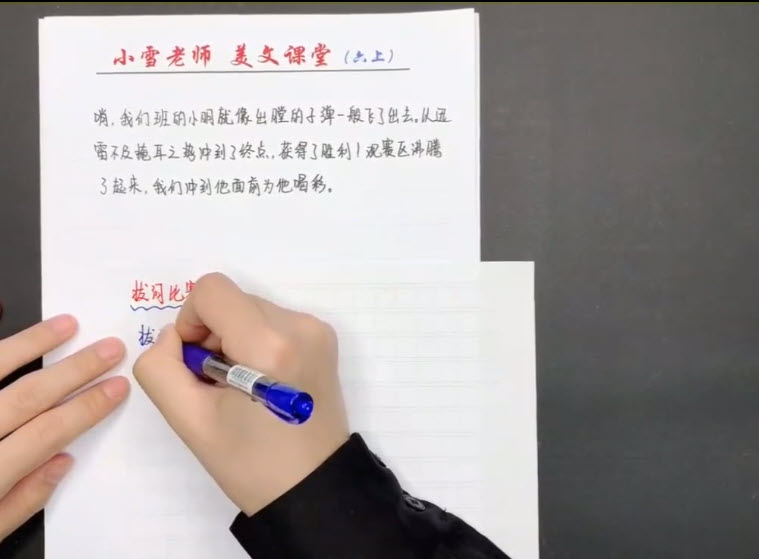 小雪老师 美文课堂（六上）
哨，我们班的小明就像出膛的子弹一般飞了出去。以迅
雷不及掩耳之势冲到了终点，获得了胜利！观赛区沸腾
了起来，我们冲到他面前为他喝彩。
拔河比赛
拔